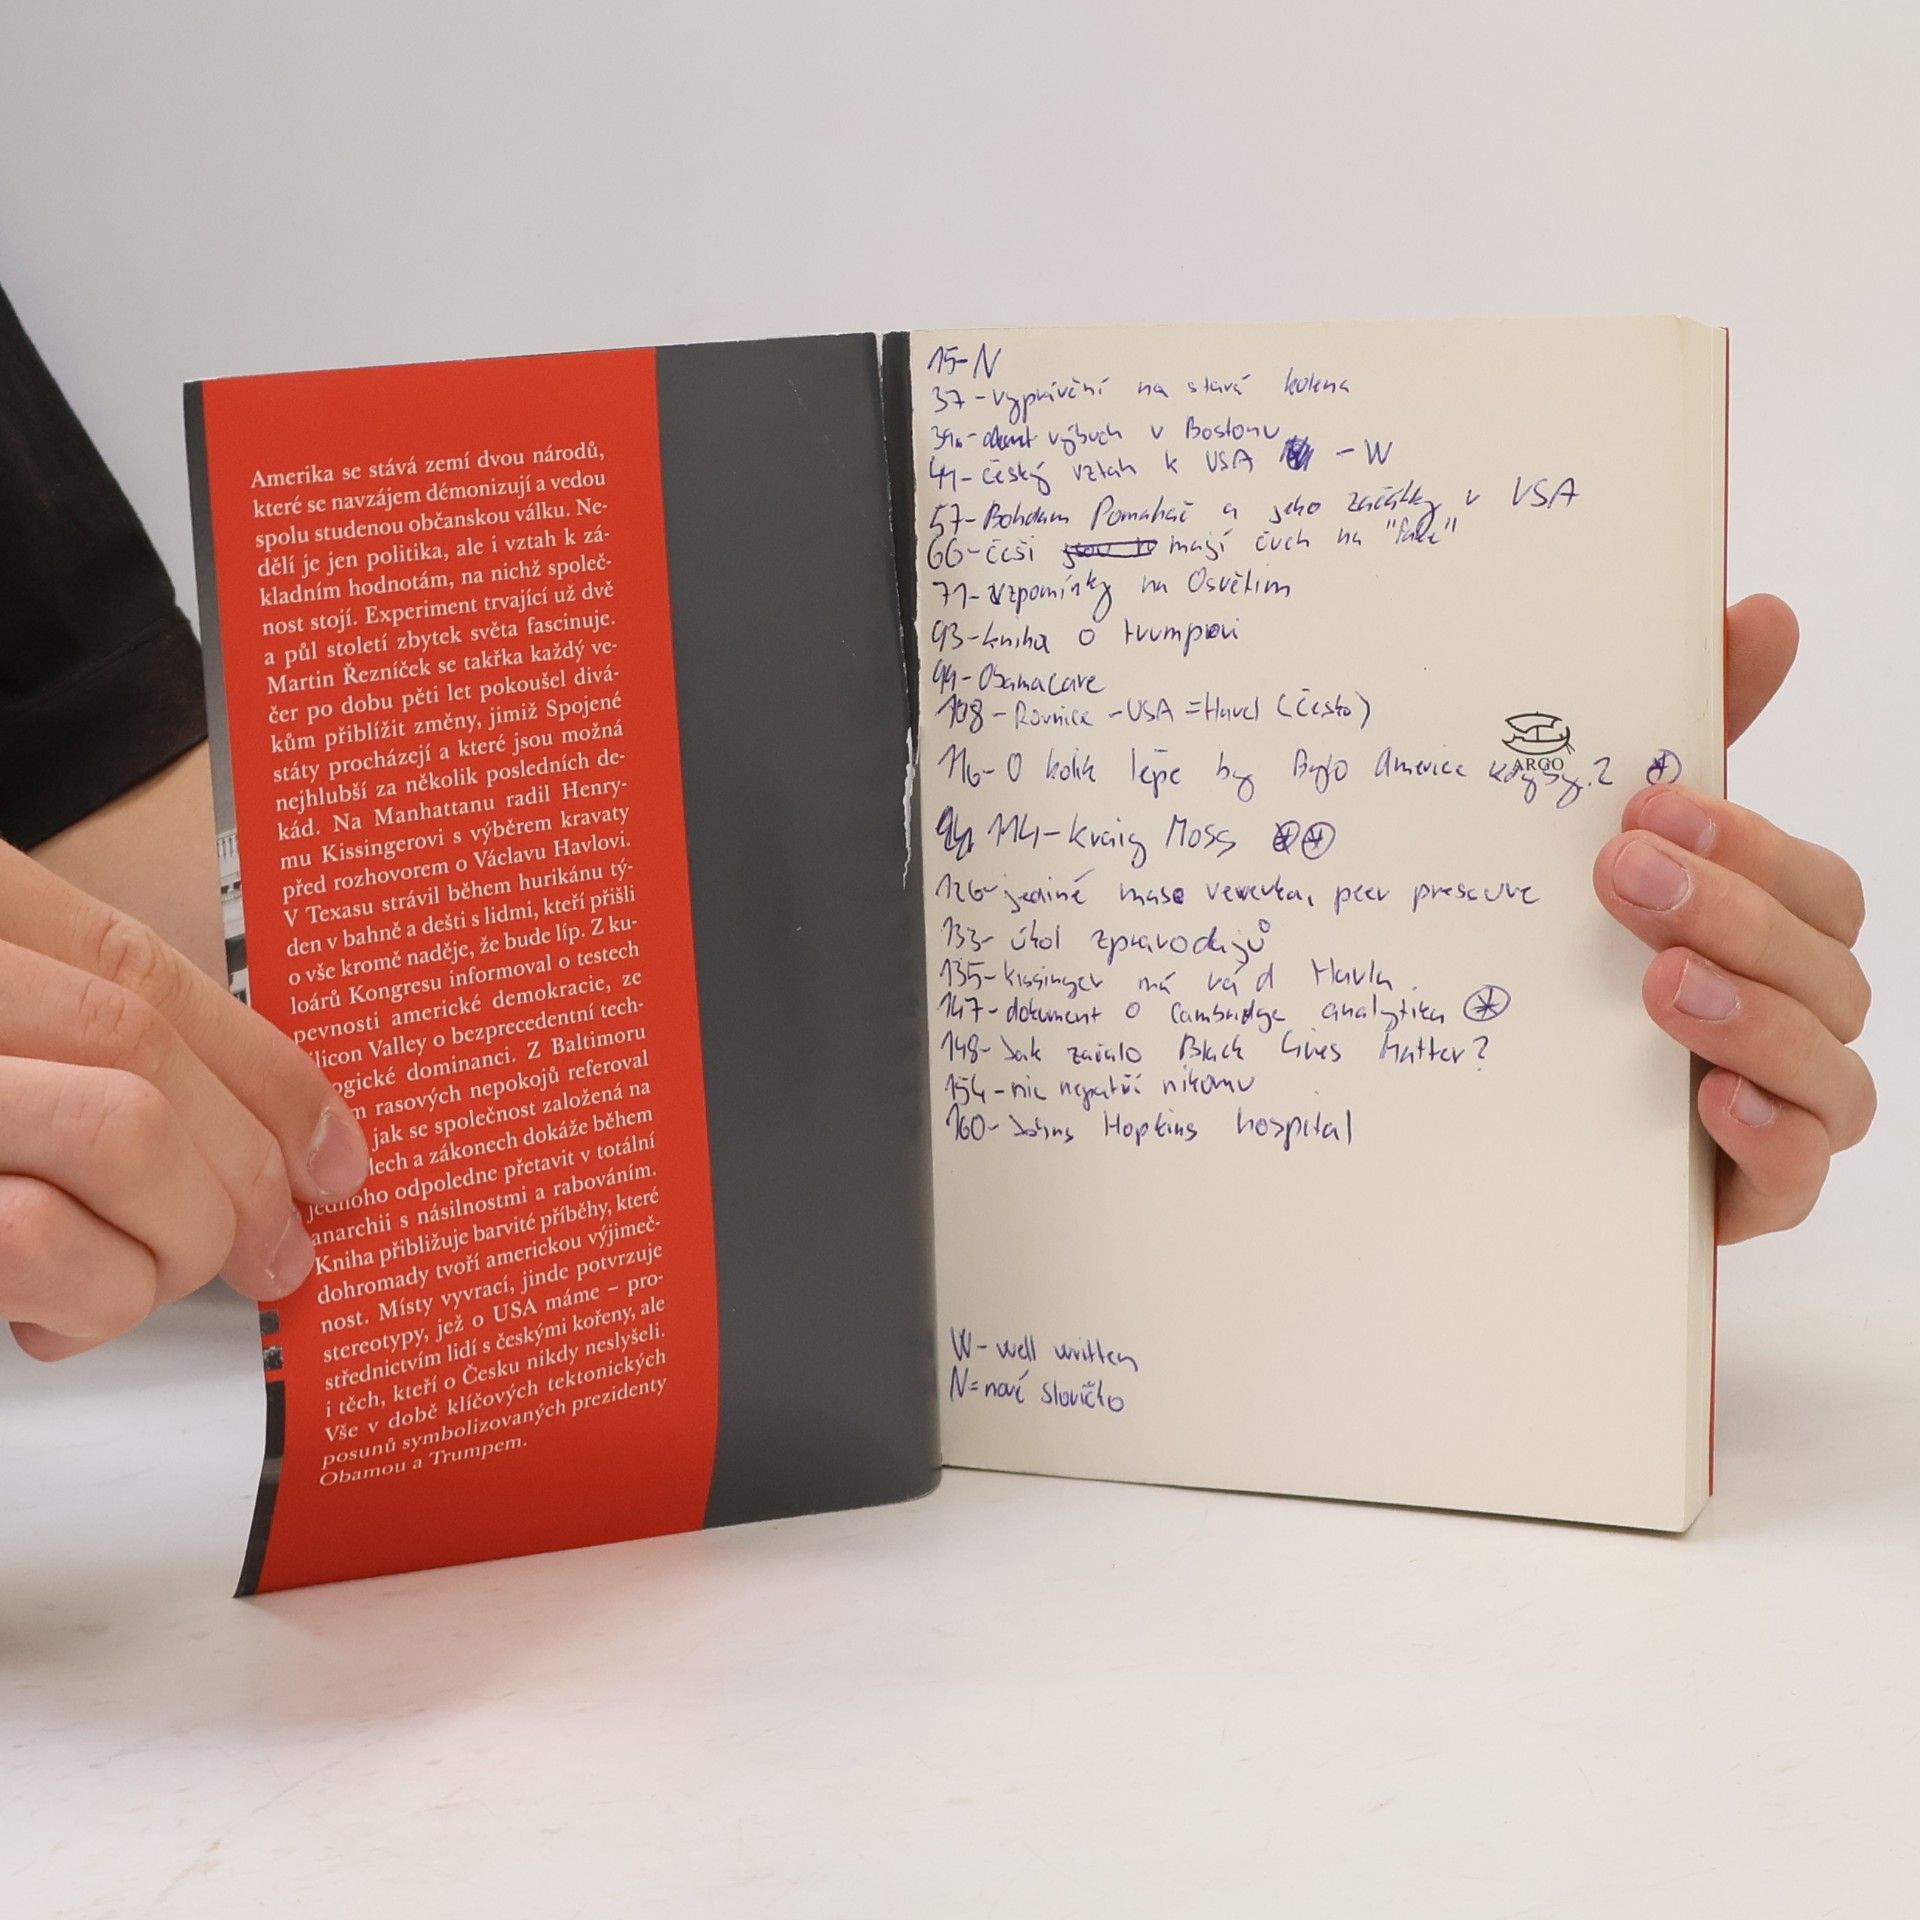 Amerika se stává zemí dvou národů,
které se navzájem démonizují a vedou
spolu studenou občanskou válku. Ne-
dělí je jen politika, ale i vztah k zá-
kladním hodnotám, na nichž společ-
nost stojí. Experiment trvající už dvě
a půl století zbytek světa fascinuje.
Martin Řezníček se takřka každý ve-
čer po dobu pěti let pokoušel divá-
kům přiblížit změny, jimiž Spojené
státy procházejí a které jsou možná
nejhlubší za několik posledních de-
kád. Na Manhattanu radil Henry-
mu Kissingerovi s výběrem kravaty
před rozhovorem o Václavu Havlovi.
V Texasu strávil během hurikánu tý-
den v bahně a dešti s lidmi, kteří přišli
o vše kromě naděje, že bude líp. Z ku-
loárů Kongresu informoval o testech
pevnosti americké demokracie, ze
ilicon Valley o bezprecedentní tech-
ogické dominanci. Z Baltimoru
m rasových nepokojů referoval
jak se společnost založená na
lech a zákonech dokáže během
jednoho odpoledne přetavit v totální
anarchii s násilnostmi a rabováním.
Kniha přibližuje barvité příběhy, které
dohromady tvoří americkou výjimeč-
nost. Místy vyvrací, jinde potvrzuje
stereotypy, jež o USA máme – pro-
střednictvím lidí s českými kořeny, ale
i těch, kteří o Česku nikdy neslyšeli.
Vše v době klíčových tektonických
posunů symbolizovaných prezidenty
Obamou a Trumpem.
15-N
37-vyprávění na stará kolena
výbuch v Bostonu
41-český vztah k USA - W
57-Bohdan Pomahač a jeho začátky v USA
66-češi mají čuch na "fake"
71-vzpomínky na Osvětim
93-kniha o trumpovi
99-Obamacare
108-Rovnice -USA = Havel (Česko)
116-O kolik lépe by Bylo Americe kdyby.?
ARGO
114-Kraig Moss
126-jediné maso veverka, peer pressure
133-úkol zpravodajů
135-kissinger má rád Havla.
147-dokument o Cambridge analytika
148-Jak začalo Black Lives Matter?
154-nic nepatří nikomu
160-Johns Hopkins hospital
W-well written
N=nové slovíčko